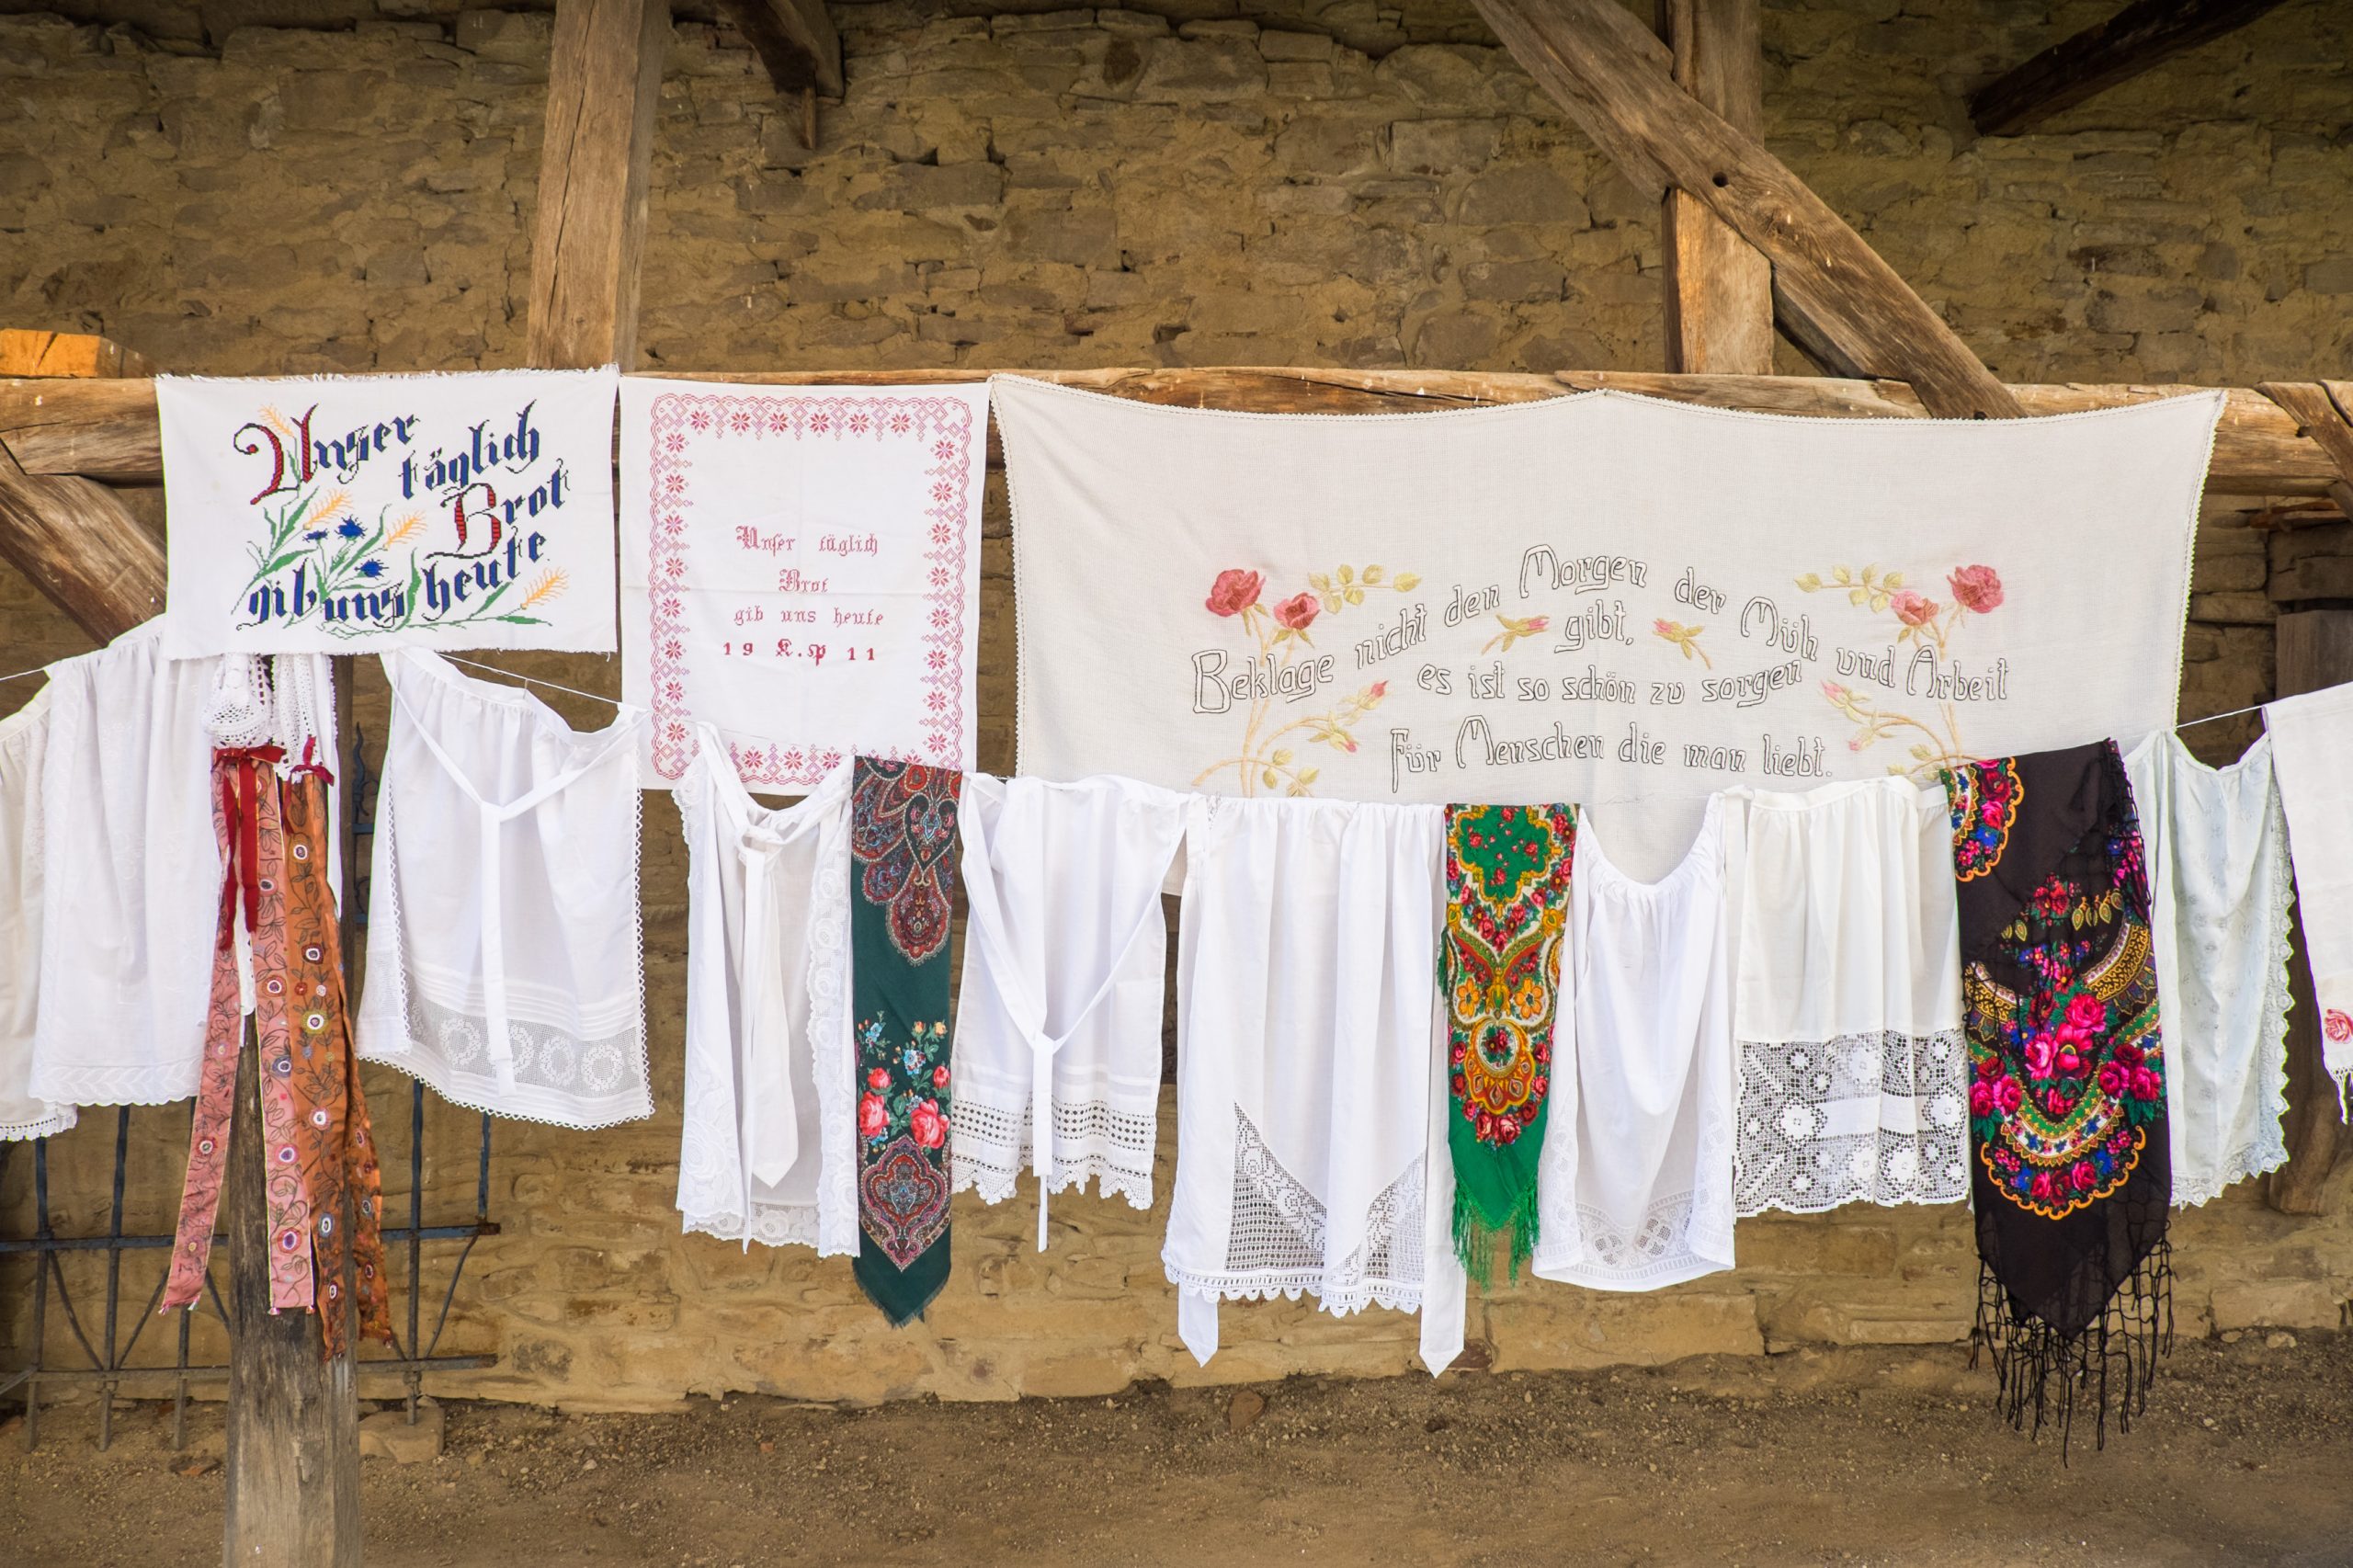 Unser
täglich
Brot
gib uns heute
Unser täglich
Brot
gib uns heute
19 K.P 11
Beklage nicht den Morgen der Müh und Arbeit
gibt,
es ist so schön zu sorgen
Für Menschen die man liebt.